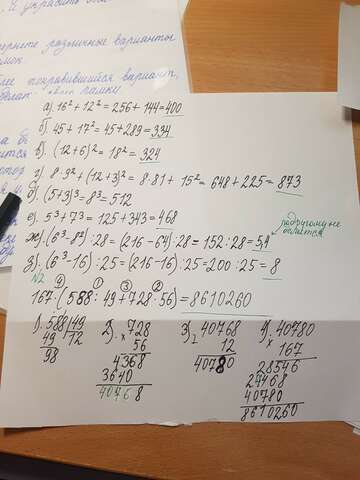 и украсить
вернете различные варианты
более понравившийся вариант,
рамку
а) 16² + 12² = 256 + 144 = 400
б) 45 + 17² = 45 + 289 = 334
в) (12 + 6)² = 18² = 324
г) 8·9² + (12 + 3)² = 8·81 + 15² = 648 + 225 = 873
д) (5+3)³ = 8³ = 512
е) 5³ + 7³ = 125 + 343 = 468
ж) (6³ - 8²) : 28 = (216 - 64) : 28 = 152 : 28 = 5,4
подругому не
делится
з) (6³ - 16) : 25 = (216 - 16) : 25 = 200 : 25 = 8
N2
④ ① ③ ②
167 · (588 : 49 + 728 : 56) = 8610260
1) 588 49
49 12
98
2) 728
× 56
4368
3640
40768
3) 40768
12
40780
4) 40780
× 167
28546
24468
40780
8610260